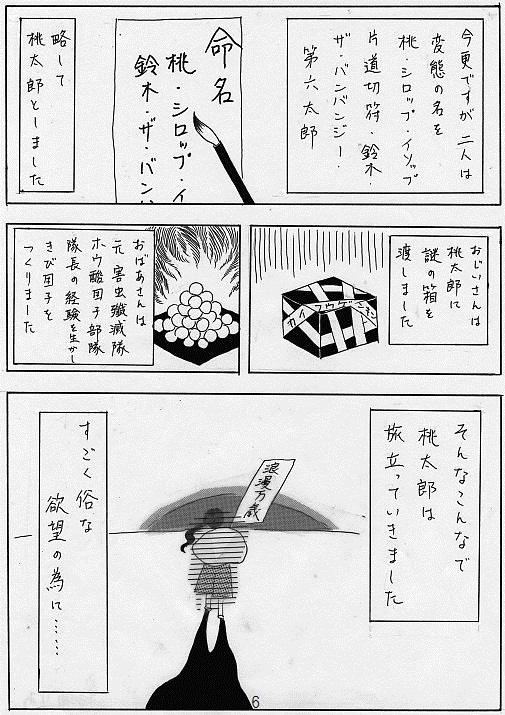 今更ですが二人は
変態の名を
桃・シロップ・イソップ
片道切符・鈴木・
ザ・バンバンジー・
第六太郎
命名
桃・シロップ・イ
鈴木・ザ・バンバ
略して
桃太郎としました
おじいさんは
桃太郎に
謎の箱を
渡しました
カイフウゲンキン
おばあさんは
元害虫殲滅隊
ホウ酸団子部隊
隊長の経験を生かし
きび団子を
つくりました
そんなこんなで
桃太郎は
旅立っていきました
浪漫万歳
すごく俗な
欲望の為に……
6